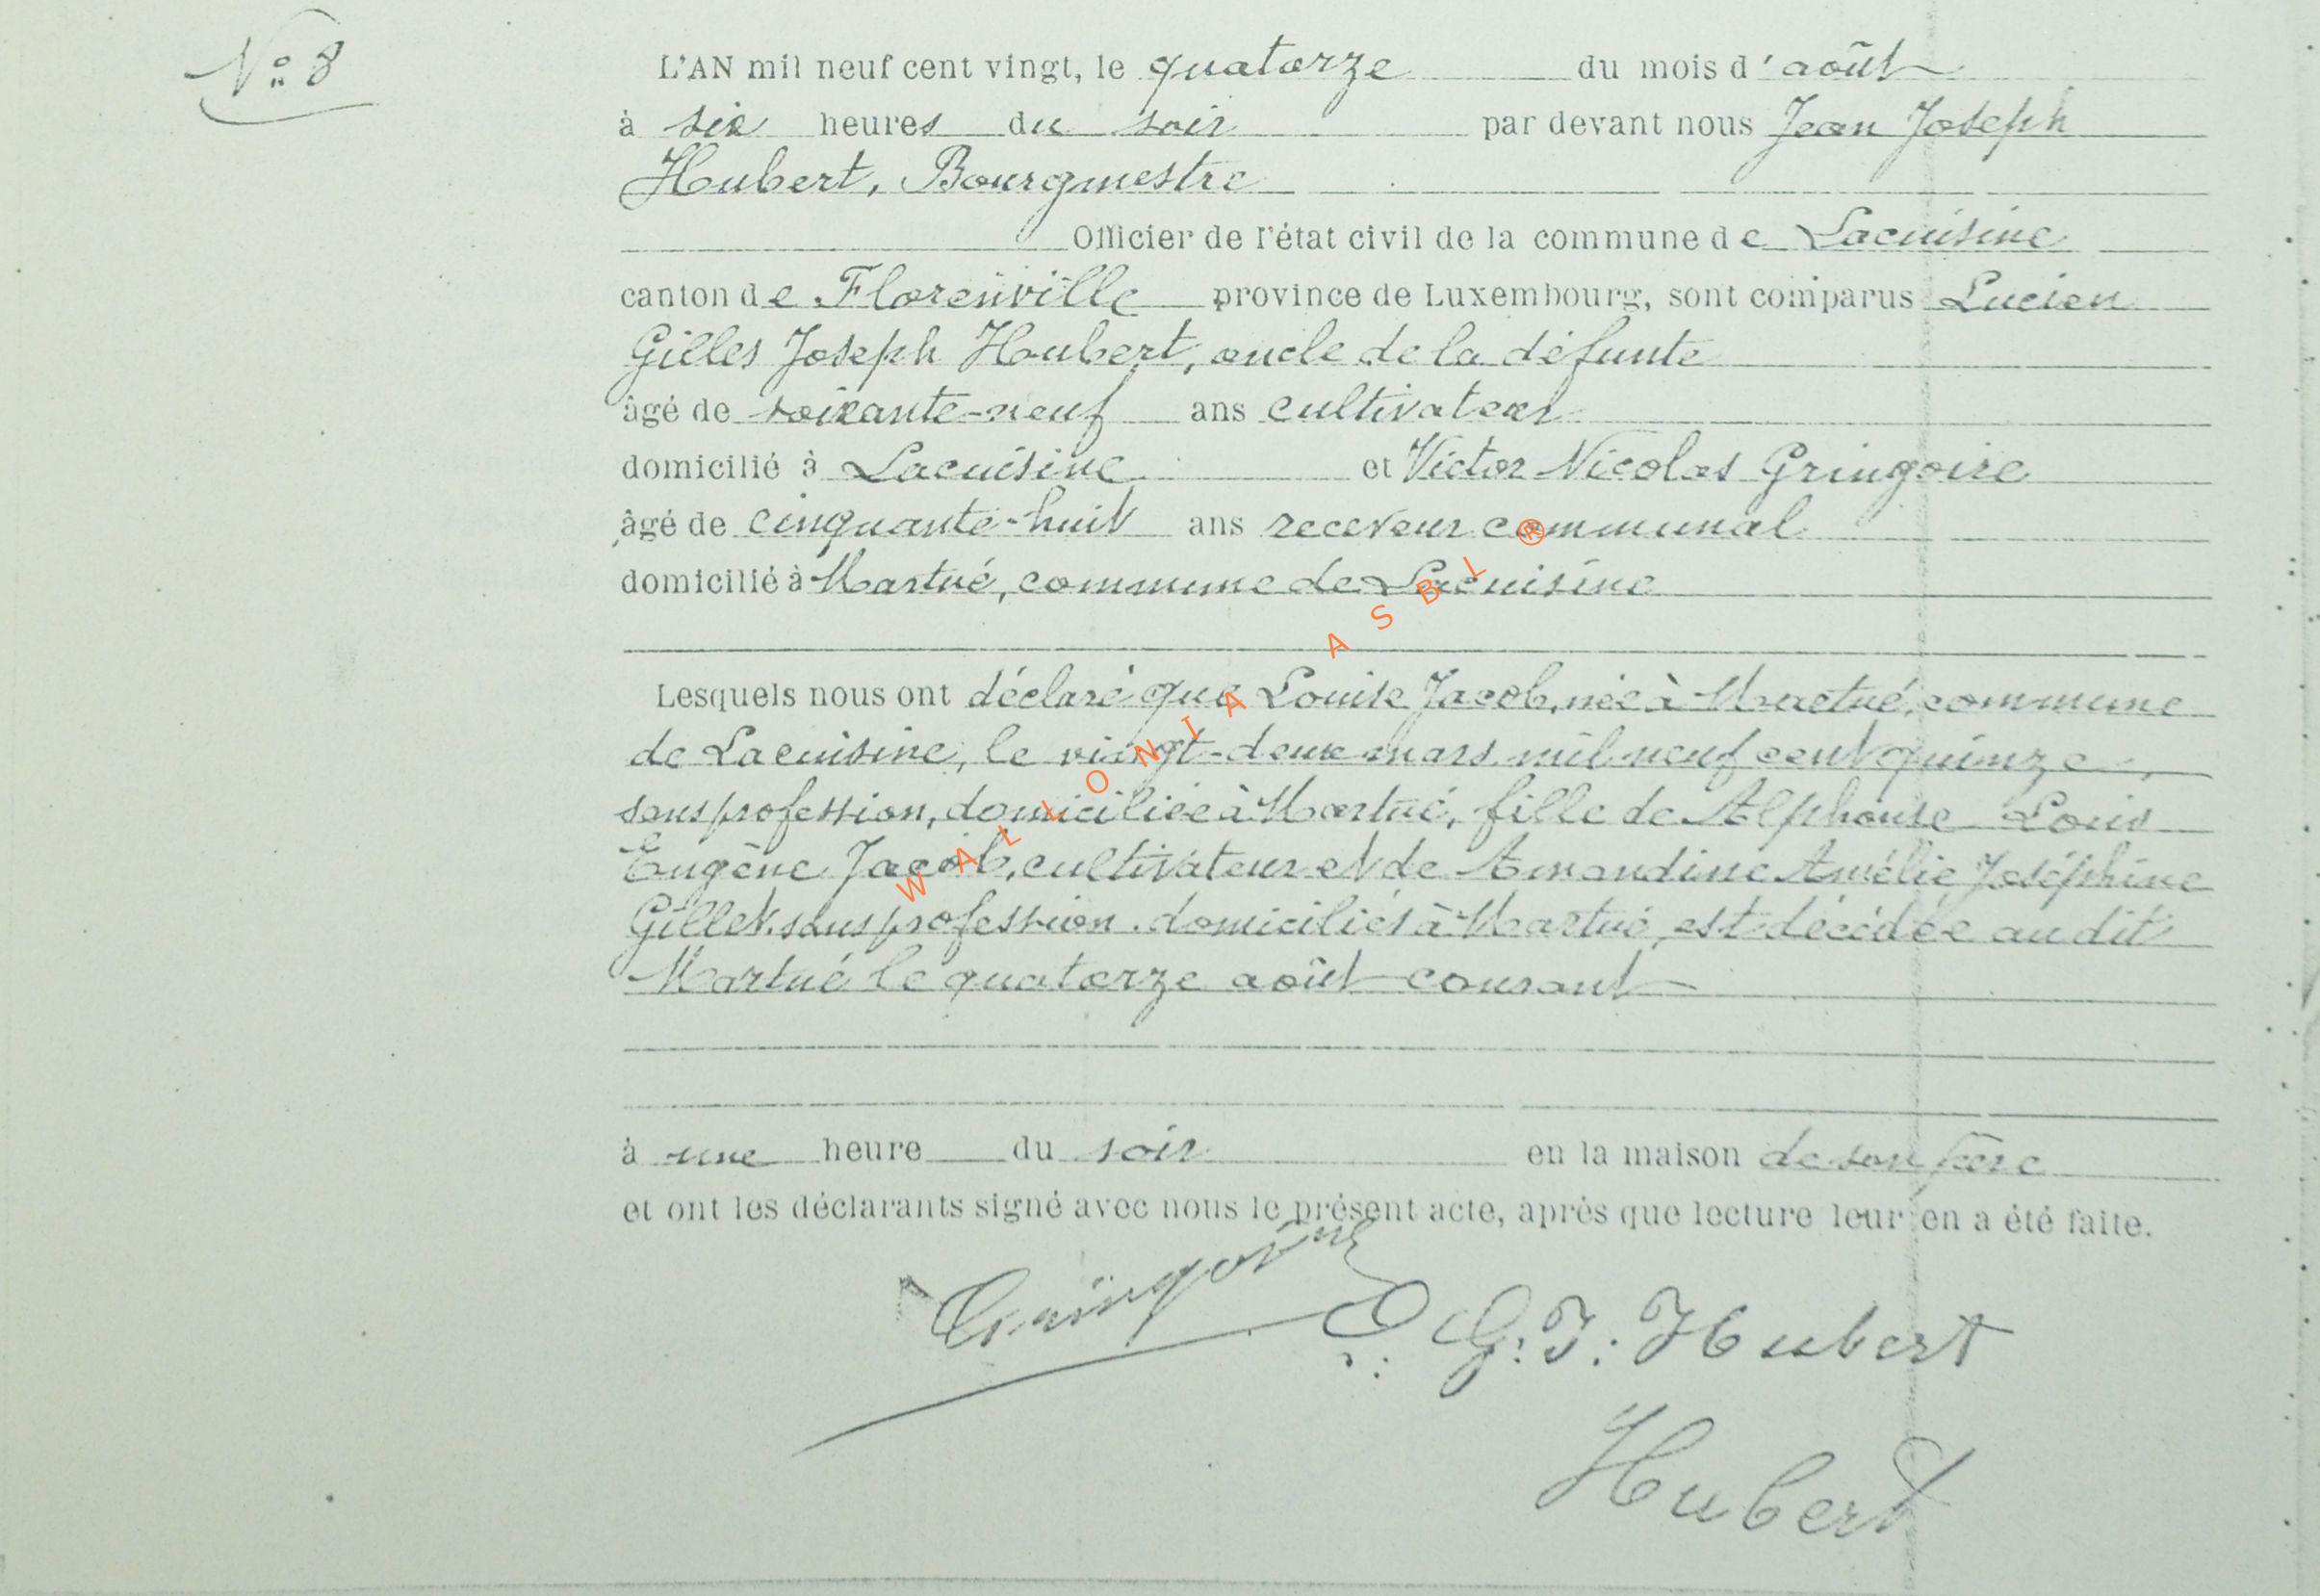 N° 8
L'AN mil neuf cent vingt, le quatorze du mois d'août
à six heures du soir par devant nous Jean Joseph
Hubert, Bourgmestre
Officier de l'état civil de la commune de Lacuisine
canton de Florenville province de Luxembourg, sont comparus Lucien
Gilles Joseph Hubert, oncle de la défunte
âgé de soixante-neuf ans cultivateur
domicilié à Lacuisine et Victor Nicolas Gringoire
âgé de cinquante-huit ans receveur communal
domicilié à Martué, commune de Lacuisine
Lesquels nous ont déclaré que Louise Jacob, née à Martué, commune
de Lacuisine, le vingt-deux mars mil neuf cent quinze,
sans profession, domiciliée à Martué, fille de Alphonse Louis
Eugène Jacob, cultivateur et de Amandine Amélie Joséphine
Gillet, sans profession, domiciliés à Martué, est décédée au dit
Martué le quatorze août courant
à une heure du soir en la maison de son père
et ont les déclarants signé avec nous le présent acte, après que lecture leur en a été faite.
Gringoire
G. J. Hubert
Hubert
WALLONIA ASBL ®